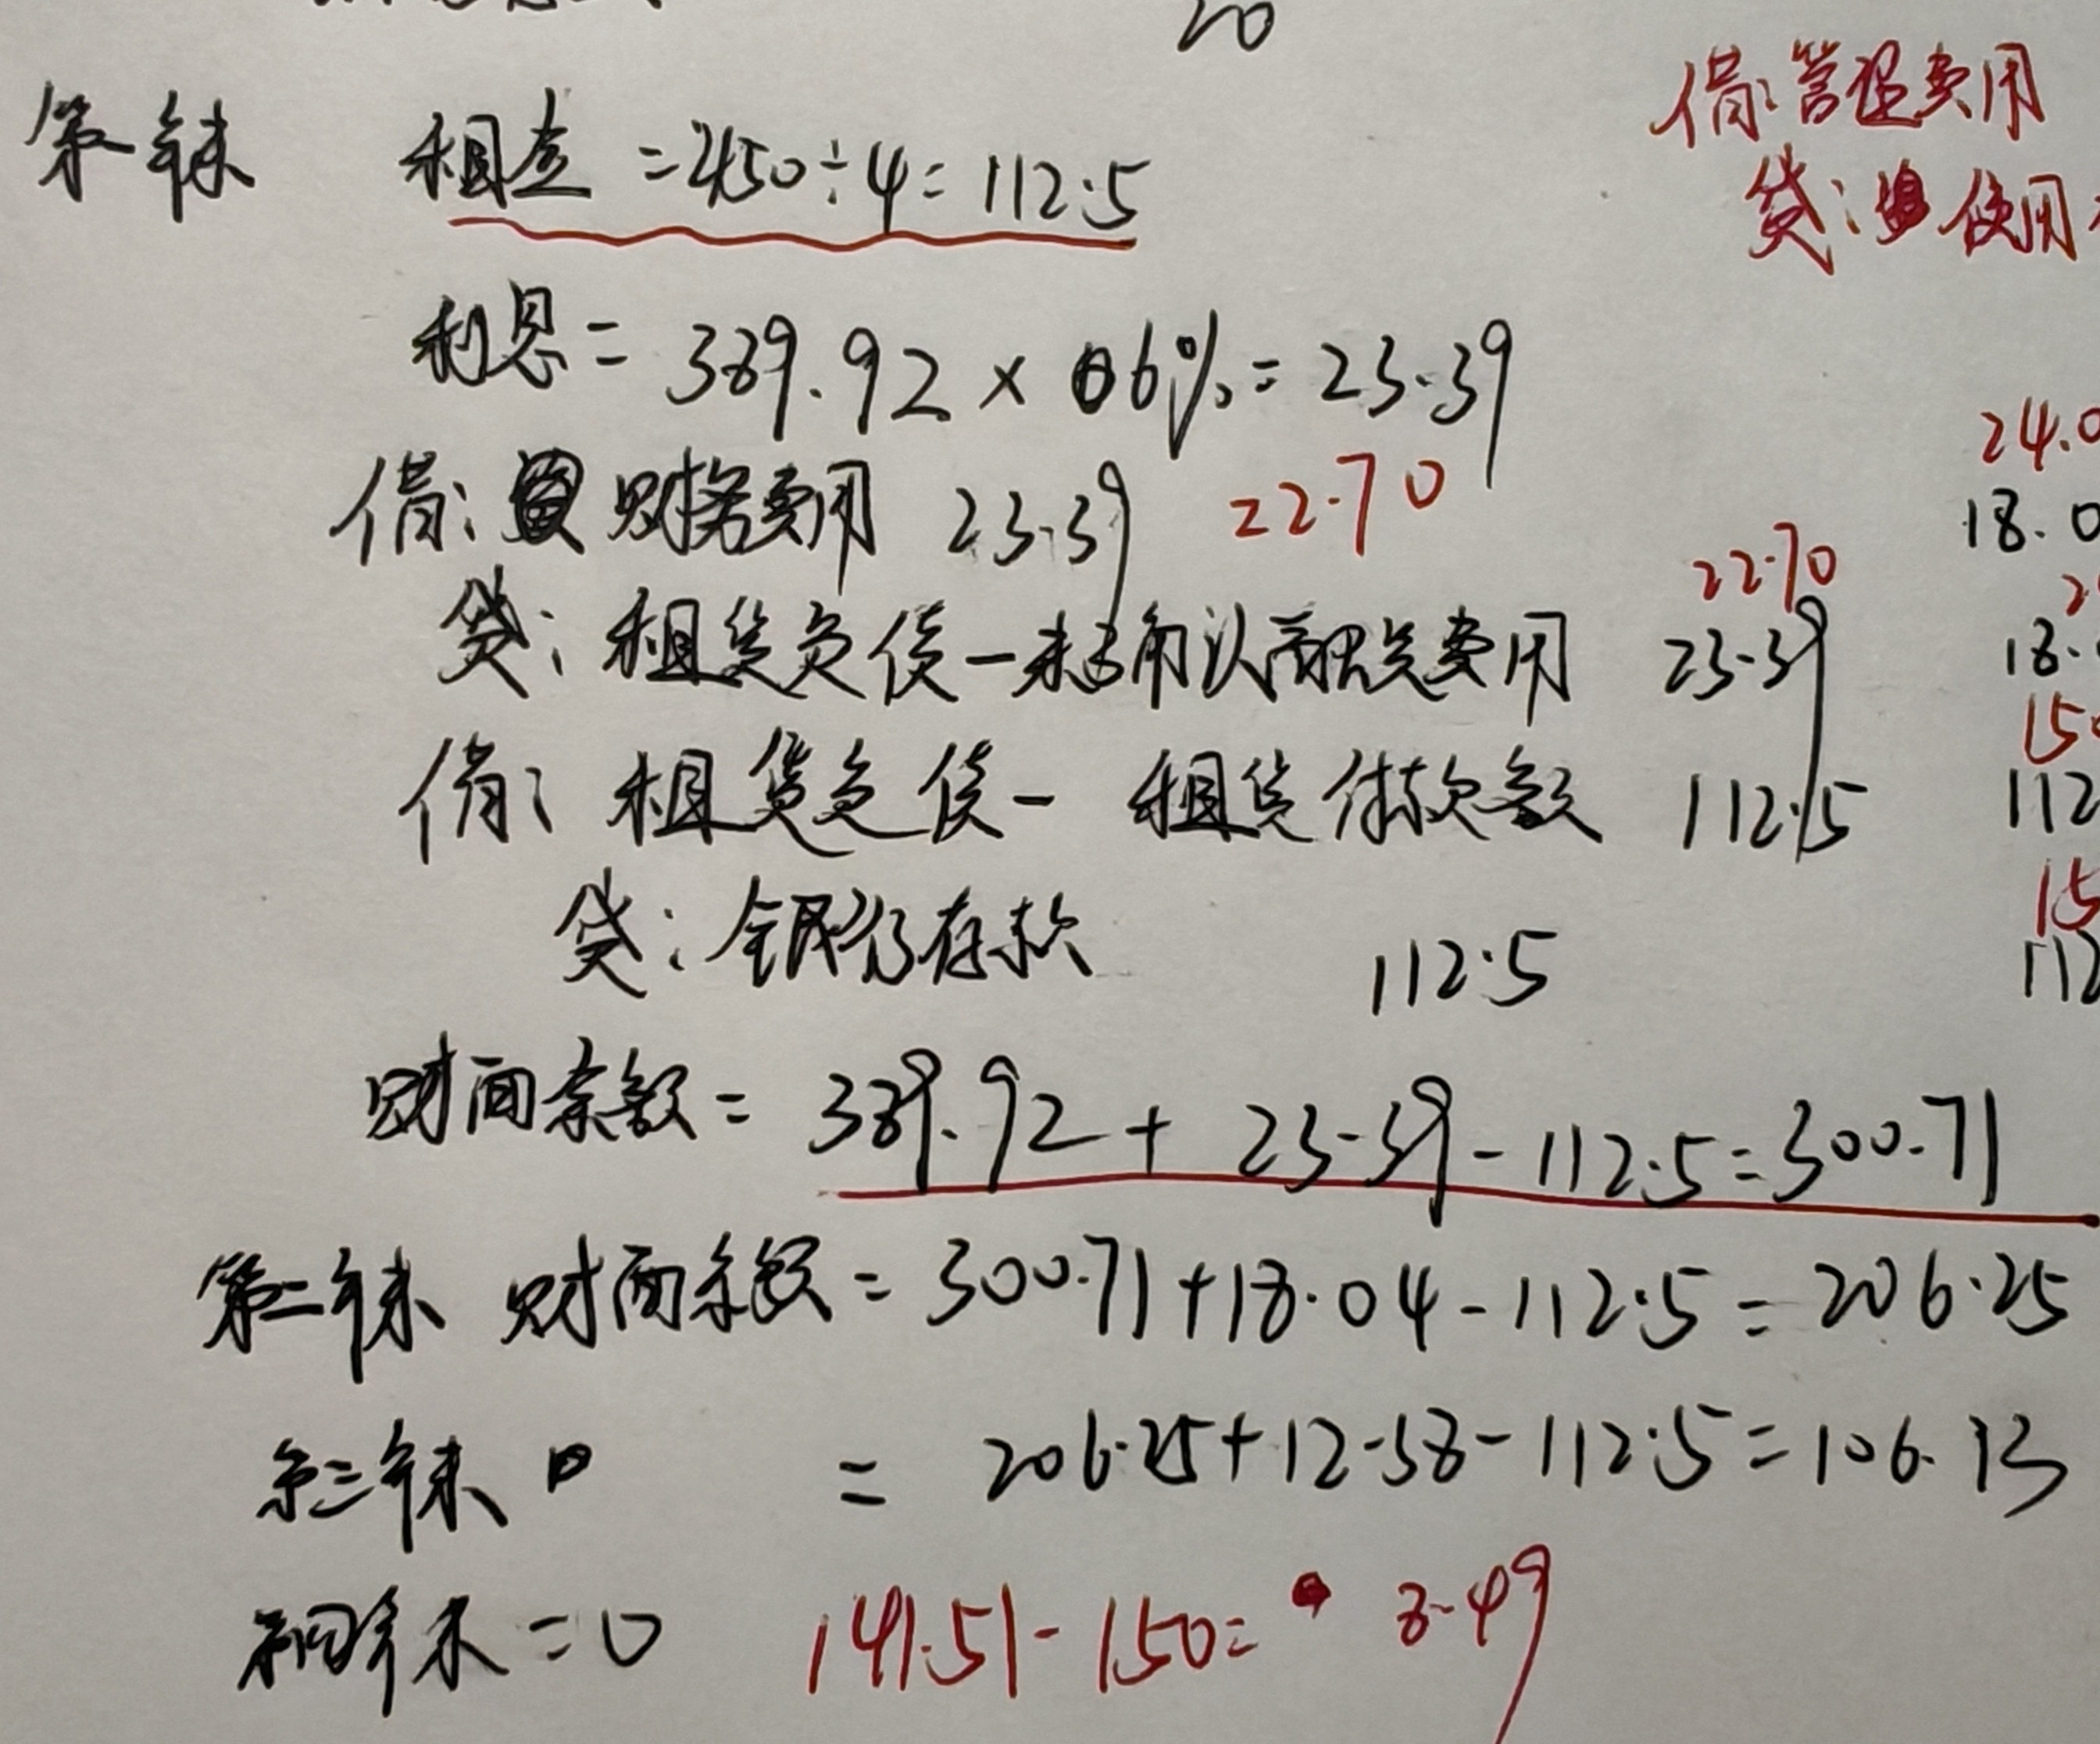 20
借:管理费用
第一年末 租金 = 450÷4= 112.5
贷: 使用
利息 = 389.92 × 6% = 23.39
24.0
借: 财务费用 23.39 22.70
18.0
22.70
贷: 租赁负债-未确认融资费用 23.39
18.
150
借: 租赁负债- 租赁付款额 112.5
112
贷: 银行存款 112.5
15
112
财面余额 = 389.92 + 23.39 - 112.5 = 300.71
第二年末 财面余额 = 300.71+18.04-112.5 = 206.25
第三年末 = 206.25+12.38-112.5=106.13
第四年末 = 0 141.51-150= 8.49